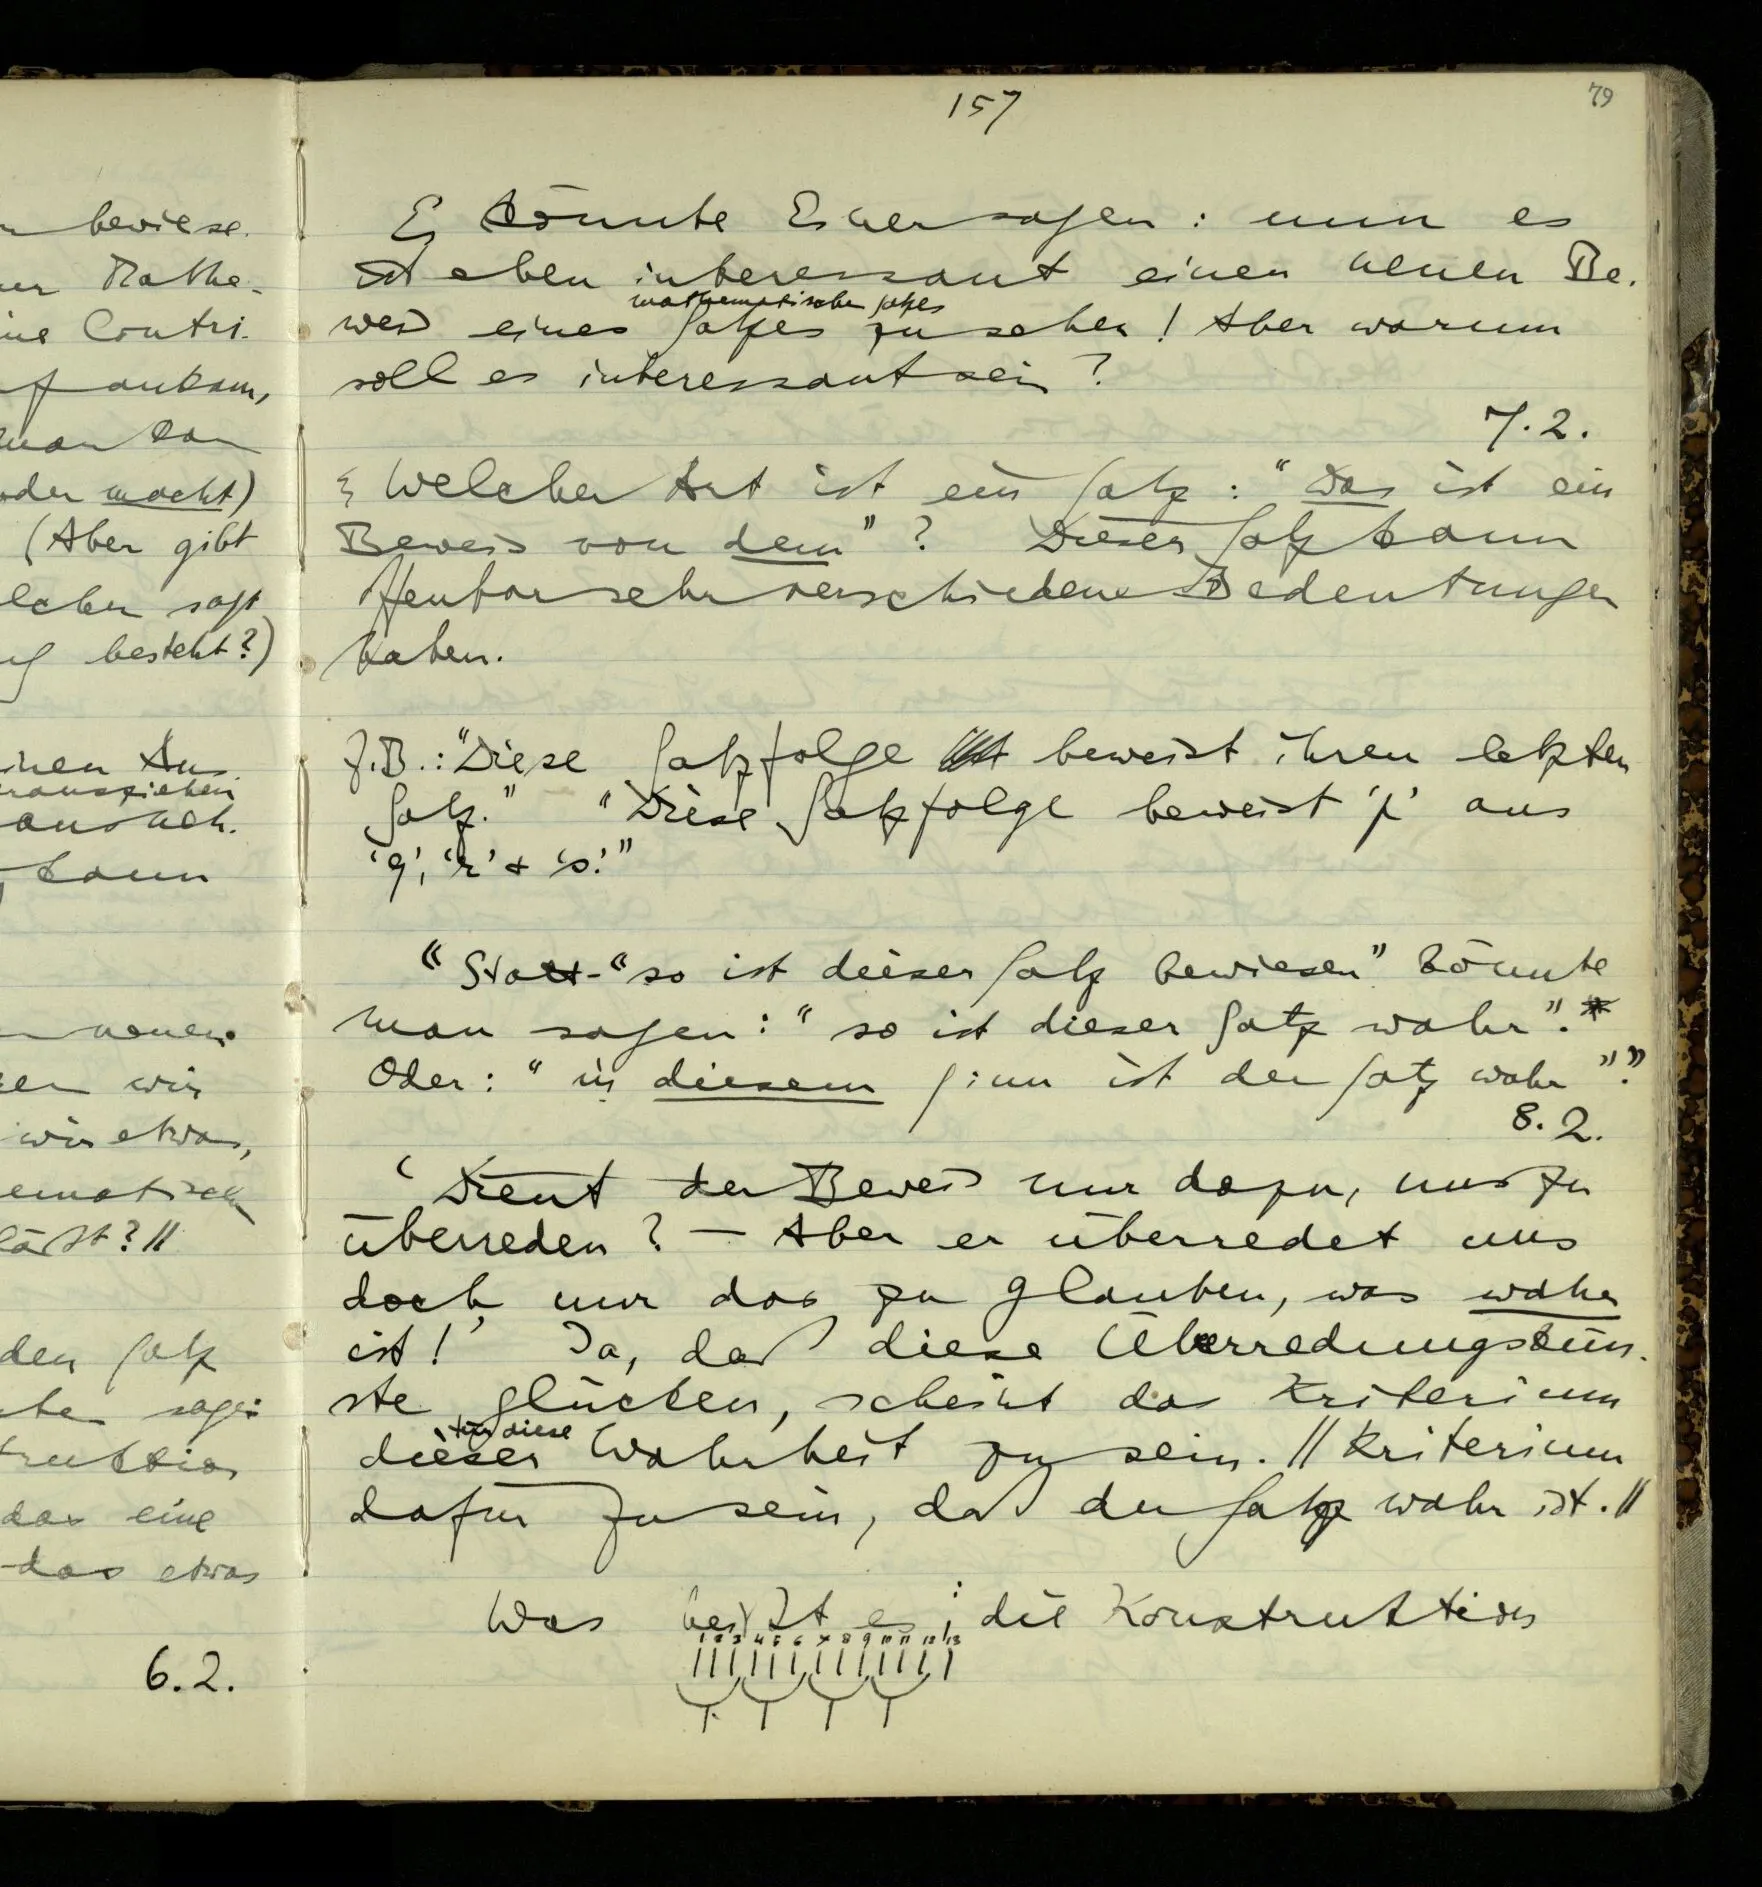 n bewiese.
ner Mathe-
ine Contri-
f ankam,
man kan
oder macht)
(Aber gibt
elcher sagt
besteht?)
inen Aus
rausziehen
kann
neuen
en wir
wir etwas,
ematisch
läßt? //
den Satz
sage:
truktion
das eine
das etwas
6.2.
157
79
Es könnte Einer sagen: nun es
ist eben interessant einen neuen Be-
mathematischen Satzes
weis eines Satzes zu sehen! Aber warum
soll es interessant sein?
7.2.
Welcher Art ist ein Satz: "Das ist ein
Beweis von dem"? Dieser Satz kann
offenbar sehr verschiedene Bedeutungen
haben.
Z.B.: "Diese Satzfolge beweist ihren letzten
Satz." "Diese Satzfolge beweist 'p' aus
'q', 'r' & 's'."
"Statt "so ist dieser Satz bewiesen" könnte
man sagen: "so ist dieser Satz wahr".*
Oder: "in diesem Sinn ist der Satz wahr"."
8.2.
'Dient der Beweis nur dazu, uns zu
überreden? – Aber er überredet uns
doch nur das zu glauben, was wahr
ist!' Ja, daß diese Überredungskün-
ste glücken, scheint das Kriterium
für diese
dieser Wahrheit zu sein. // Kriterium
dafür zu sein, daß der Satz wahr ist. //
Was heißt es: die Konstruktion
1 2 3 4 5 6 7 8 9 10 11 12 13